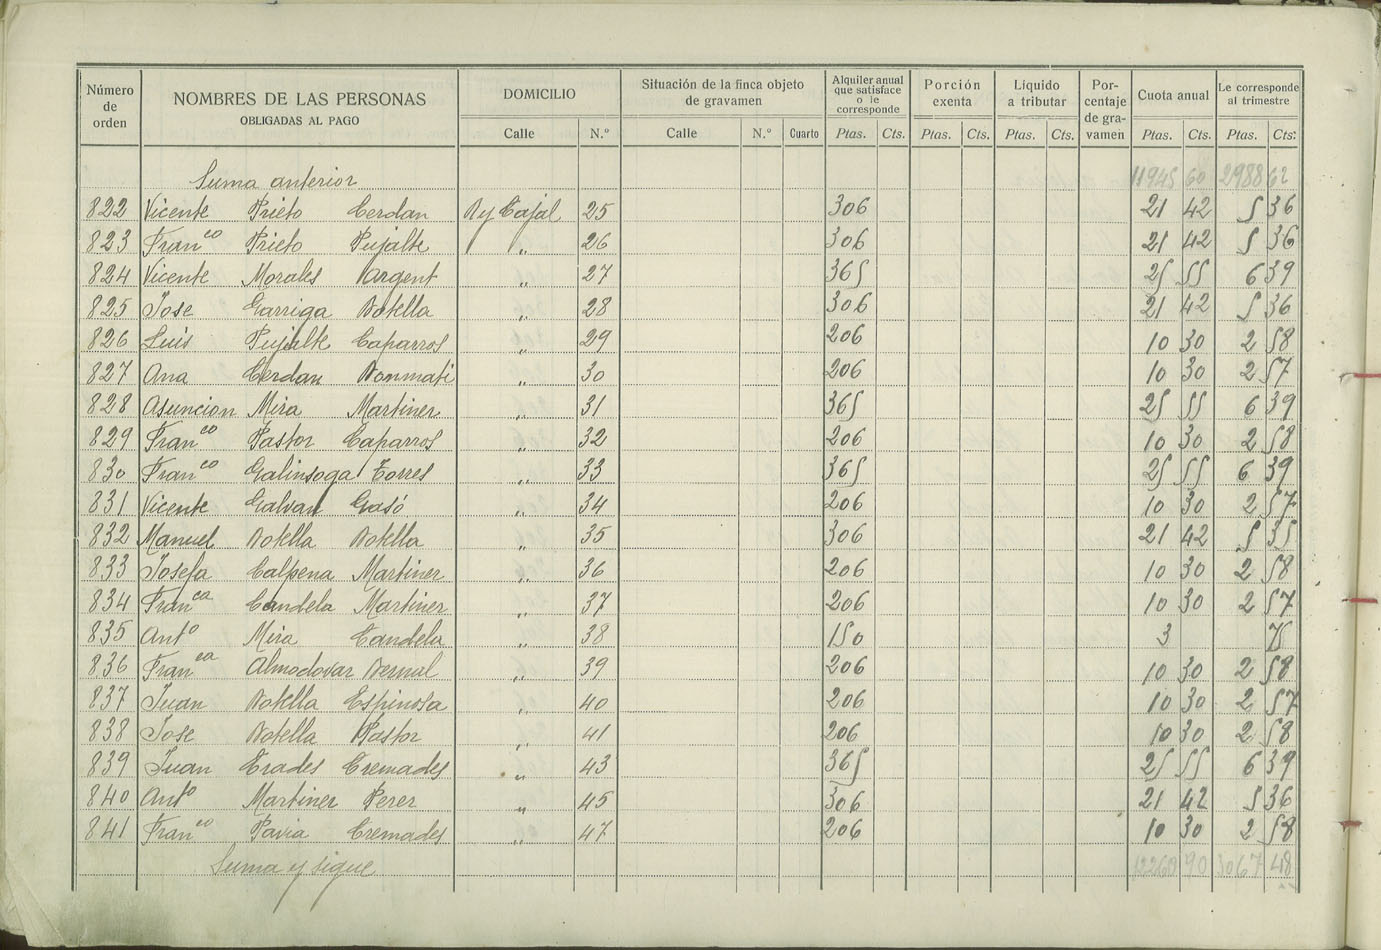 Número de orden | NOMBRES DE LAS PERSONAS OBLIGADAS AL PAGO | DOMICILIO | Situación de la finca objeto de gravamen | Alquiler anual que satisface o le corresponde | Porción exenta | Líquido a tributar | Porcentaje de gravamen | Cuota anual | Le corresponde al trimestre
Calle | N.º | Calle | N.º | Cuarto | Ptas. | Cts. | Ptas. | Cts. | Ptas. | Cts. | Ptas. | Cts. | Ptas. | Cts.
Suma anterior 11945 60 2988 62
822 Vicente Prieto Cerdan R y Cajal 25 306 21 42 5 36
823 Franco Prieto Pujalte " 26 306 21 42 5 36
824 Vicente Morales Argent " 27 365 25 55 6 39
825 Jose Garriga Botella " 28 306 21 42 5 36
826 Luis Pujalte Caparros " 29 206 10 30 2 58
827 Ana Cerdan Bonmati " 30 206 10 30 2 57
828 Asuncion Mira Martinez " 31 365 25 55 6 39
829 Franco Pastor Caparros " 32 206 10 30 2 58
830 Franco Galinsoga Torres " 33 365 25 55 6 39
831 Vicente Galvan Gasó " 34 206 10 30 2 57
832 Manuel Botella Botella " 35 306 21 42 5 35
833 Josefa Calpena Martinez " 36 206 10 30 2 58
834 Franca Candela Martinez " 37 206 10 30 2 57
835 Anto Mira Candela " 38 150 3 75
836 Franca Almodovar Bernal " 39 206 10 30 2 58
837 Juan Botella Espinosa " 40 206 10 30 2 57
838 Jose Botella Pastor " 41 206 10 30 2 58
839 Juan Erades Cremades " 43 365 25 55 6 39
840 Anto Martinez Perez " 45 306 21 42 5 36
841 Franco Pavia Cremades " 47 206 10 30 2 58
Suma y sigue 12260 90 3067 48